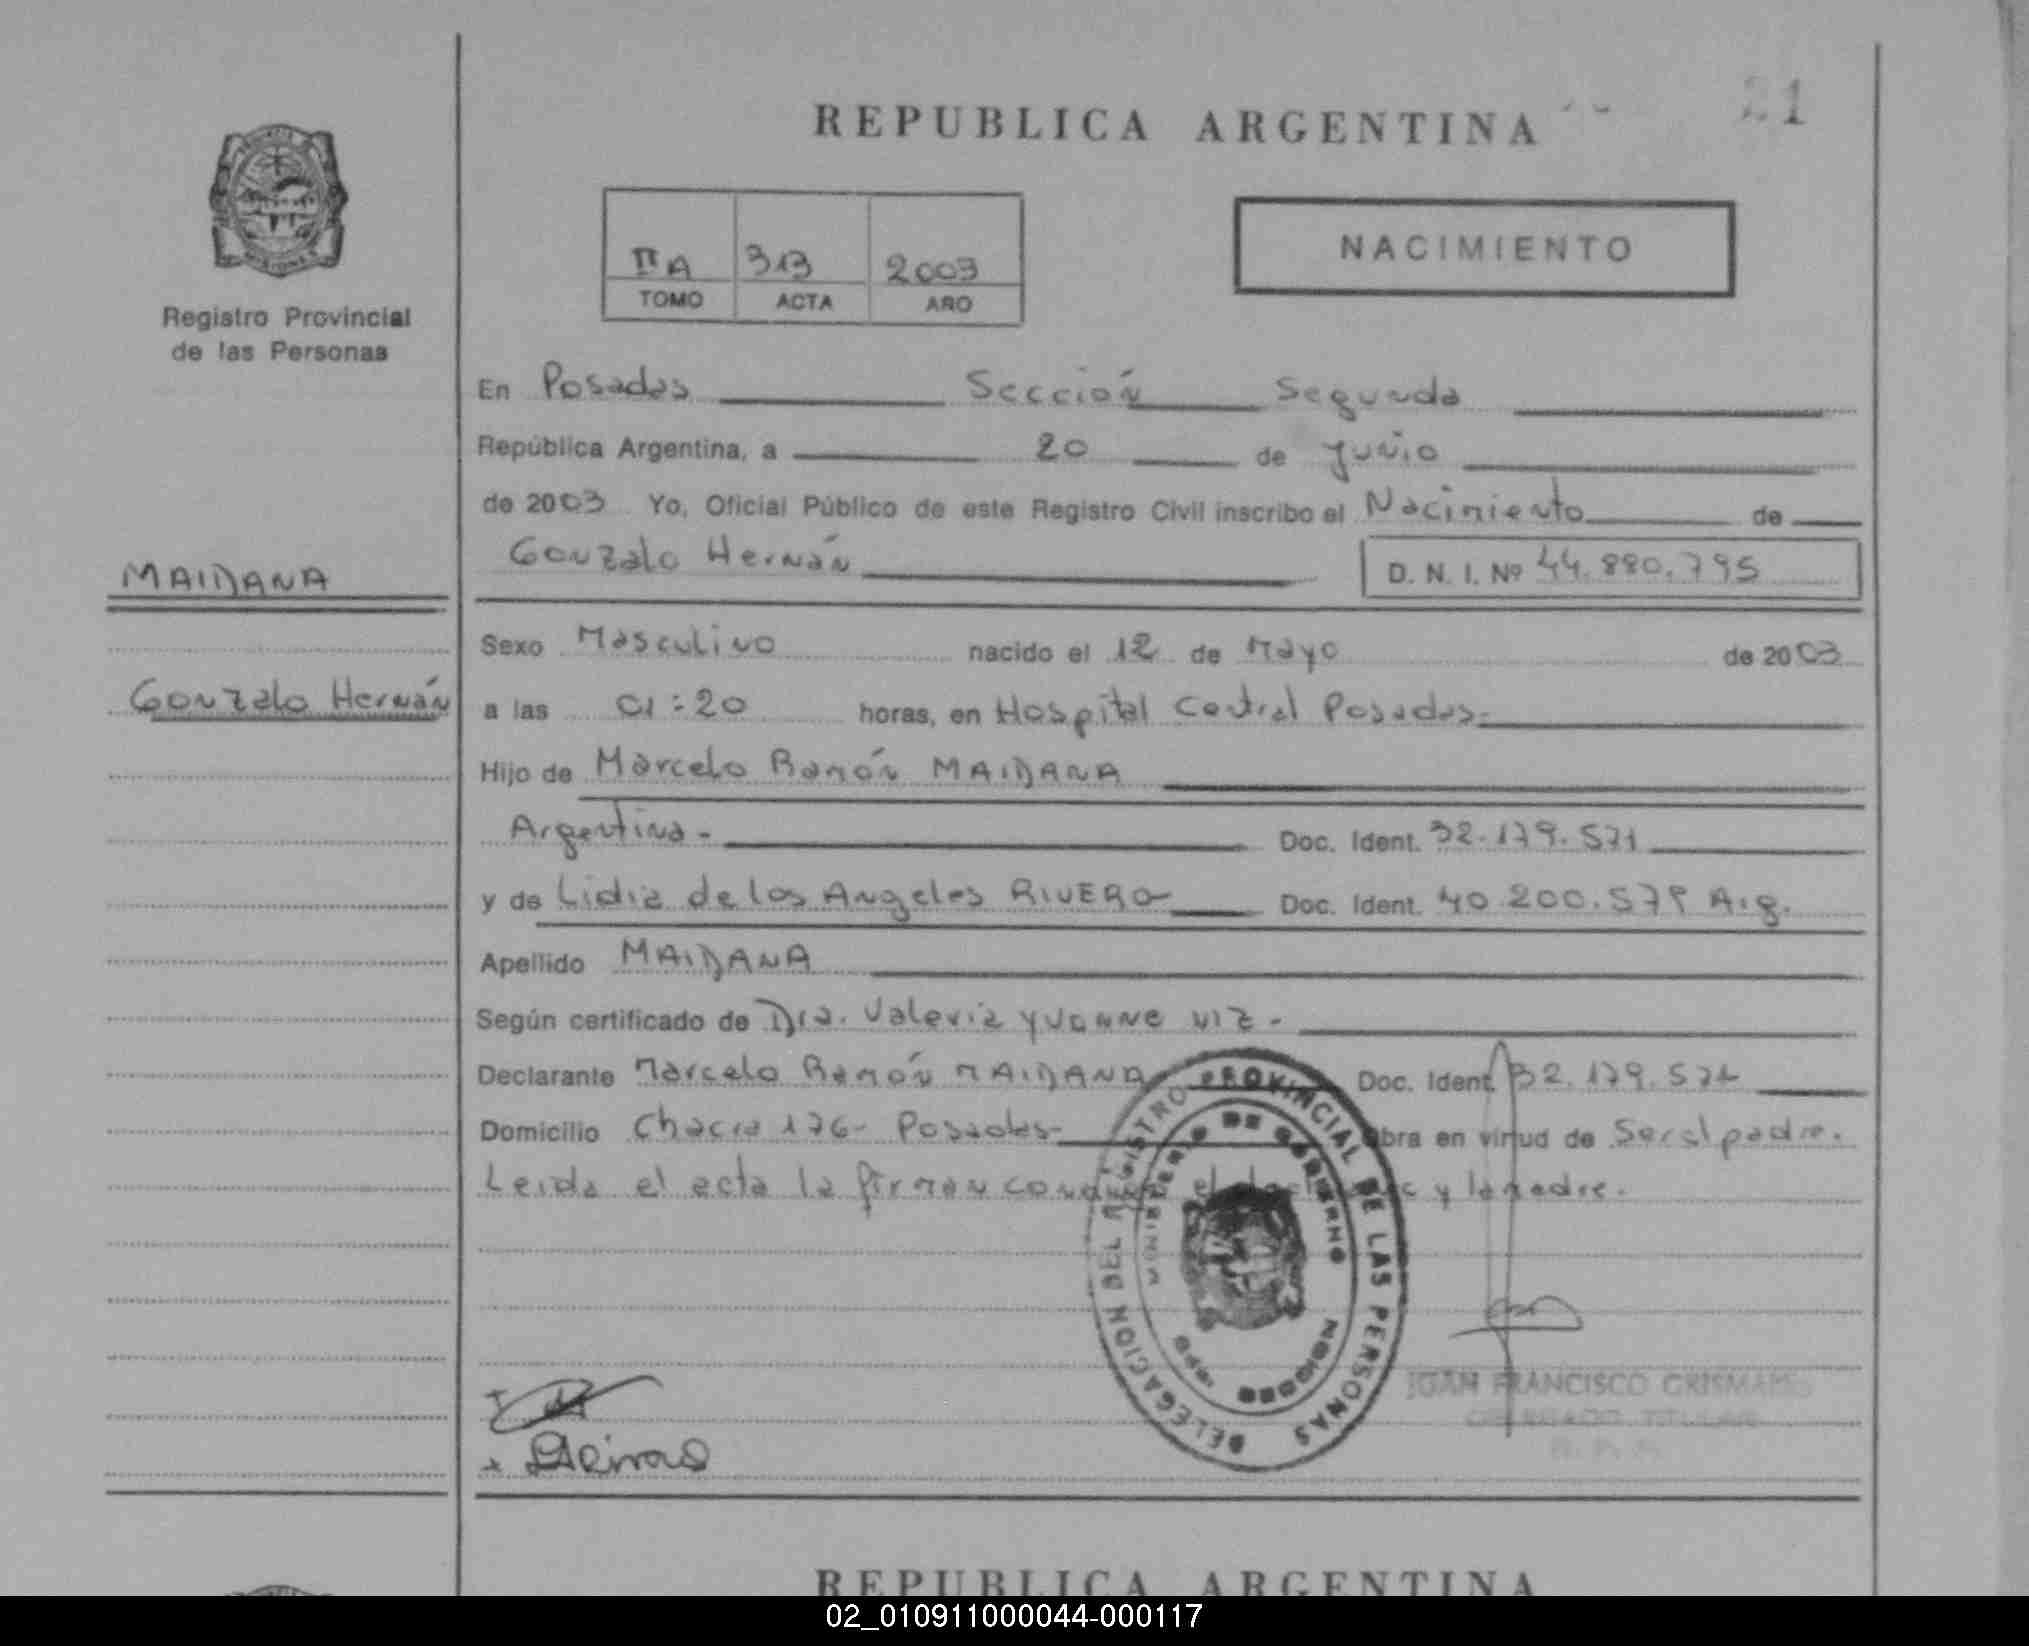 21
REPUBLICA ARGENTINA
II A 313 2003
TOMO ACTA AÑO
NACIMIENTO
MISIONES
Registro Provincial
de las Personas
En Posadas Sección Segunda
República Argentina, a 20 de Junio
de 2003 Yo, Oficial Público de este Registro Civil inscribo el Nacimiento de
Gonzalo Hernán D. N. I. Nº 44.880.795
MAIDANA
Gonzalo Hernán
Sexo Masculino nacido el 12 de Mayo de 2003
a las 01:20 horas, en Hospital Central Posadas.
Hijo de Marcelo Ramón MAIDANA
Argentina. Doc. Ident. 32.179.571
y de Lidia de los Angeles RIVERO Doc. Ident. 40.200.579 Arg.
Apellido MAIDANA
Según certificado de Dra. Valeria Yvonne VIZ.
Declarante Marcelo Ramón MAIDANA Doc. Ident. 32.179.571
Domicilio Chacra 176- Posadas- Obra en virtud de Ser el padre.
Leida el acta la firman conmigo el y la madre.
DELEGACION DEL REGISTRO PROVINCIAL DE LAS PERSONAS
MINISTERIO DE GOBIERNO
MISIONES
JUAN FRANCISCO
DELEGADO TITULAR
R. P. P.
REPUBLICA ARGENTINA
02_010911000044-000117